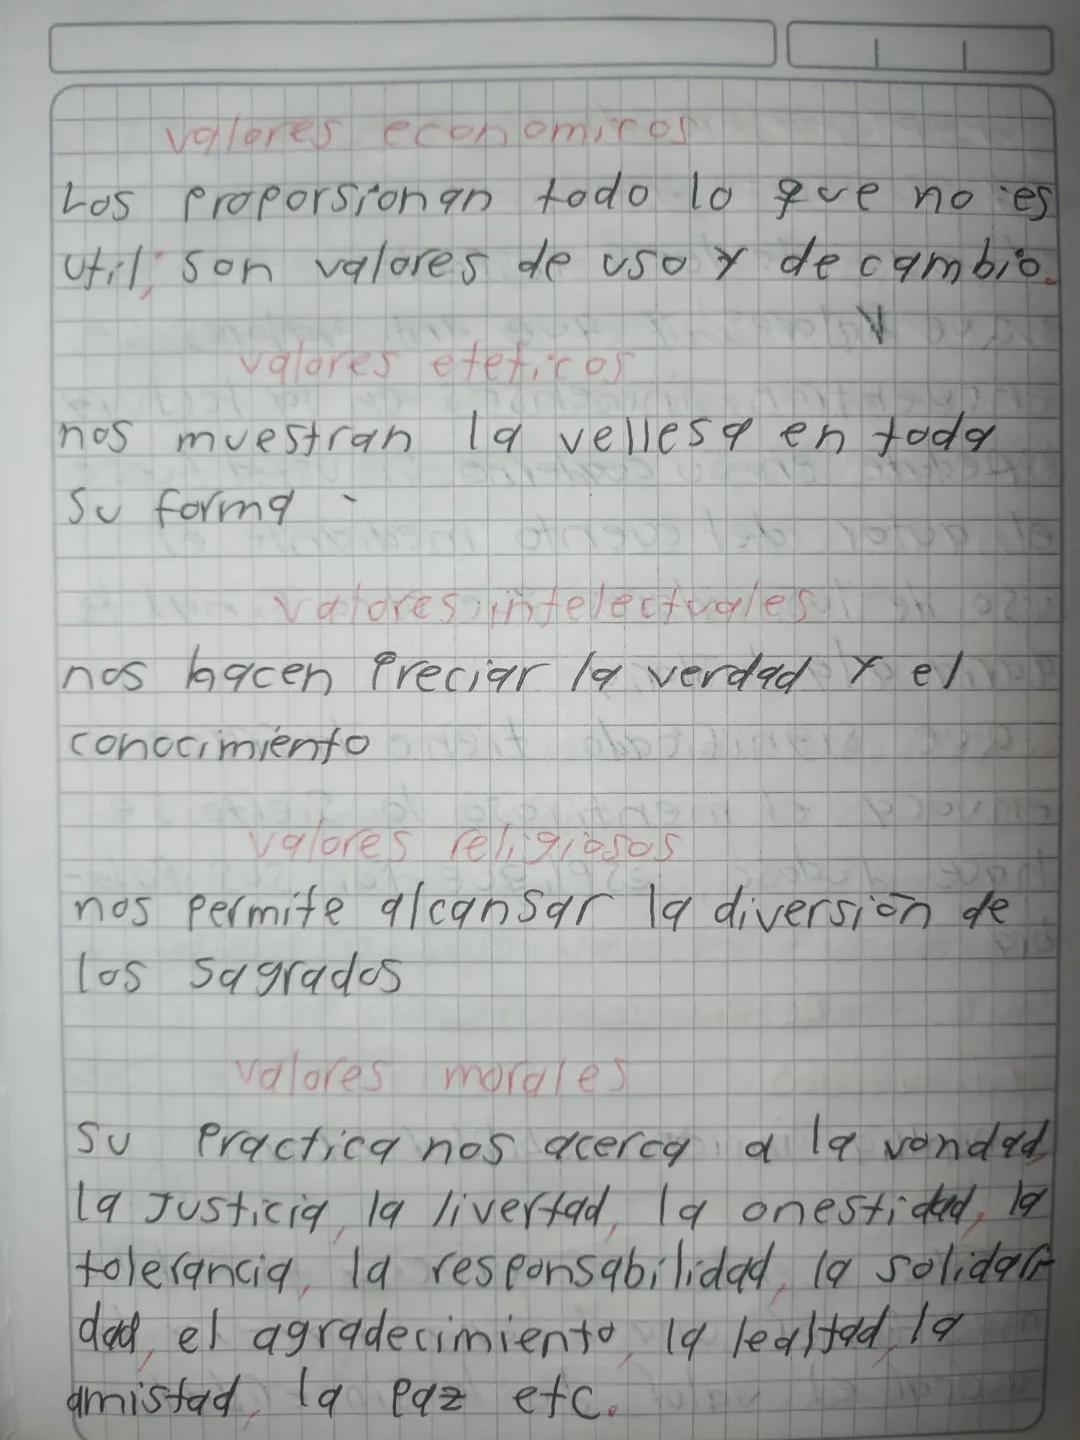 valores economicos
Los proporsionan todo lo que no es
util, son valores de uso y de cambio.
valores eteticos
nos muestran la vellesa en toda
su forma
valores intelectuales
nos hacen Preciar la verdad y el
conocimiento
valores religiosos
nos permite alcansar la diversión de
los sagrados
valores morales
su practica nos acerca a la vondad,
la Justicia, la livertad, la onestidad, la
tolerancia, la responsabilidad, la solidari
dad, el agradecimiento, la lealtad, la
amistad, la paz etc.